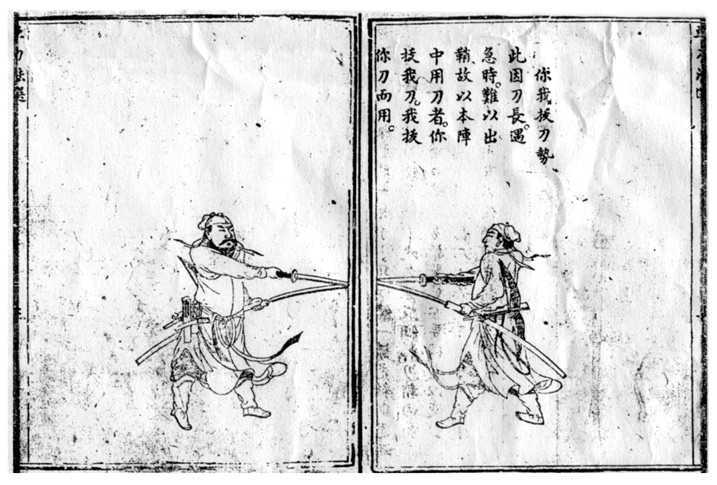 你我拔刀勢
此因刀長。遇
急時。難以出
鞘。故以本陣
中用刀者。你
拔我刀。我拔
你刀而用。